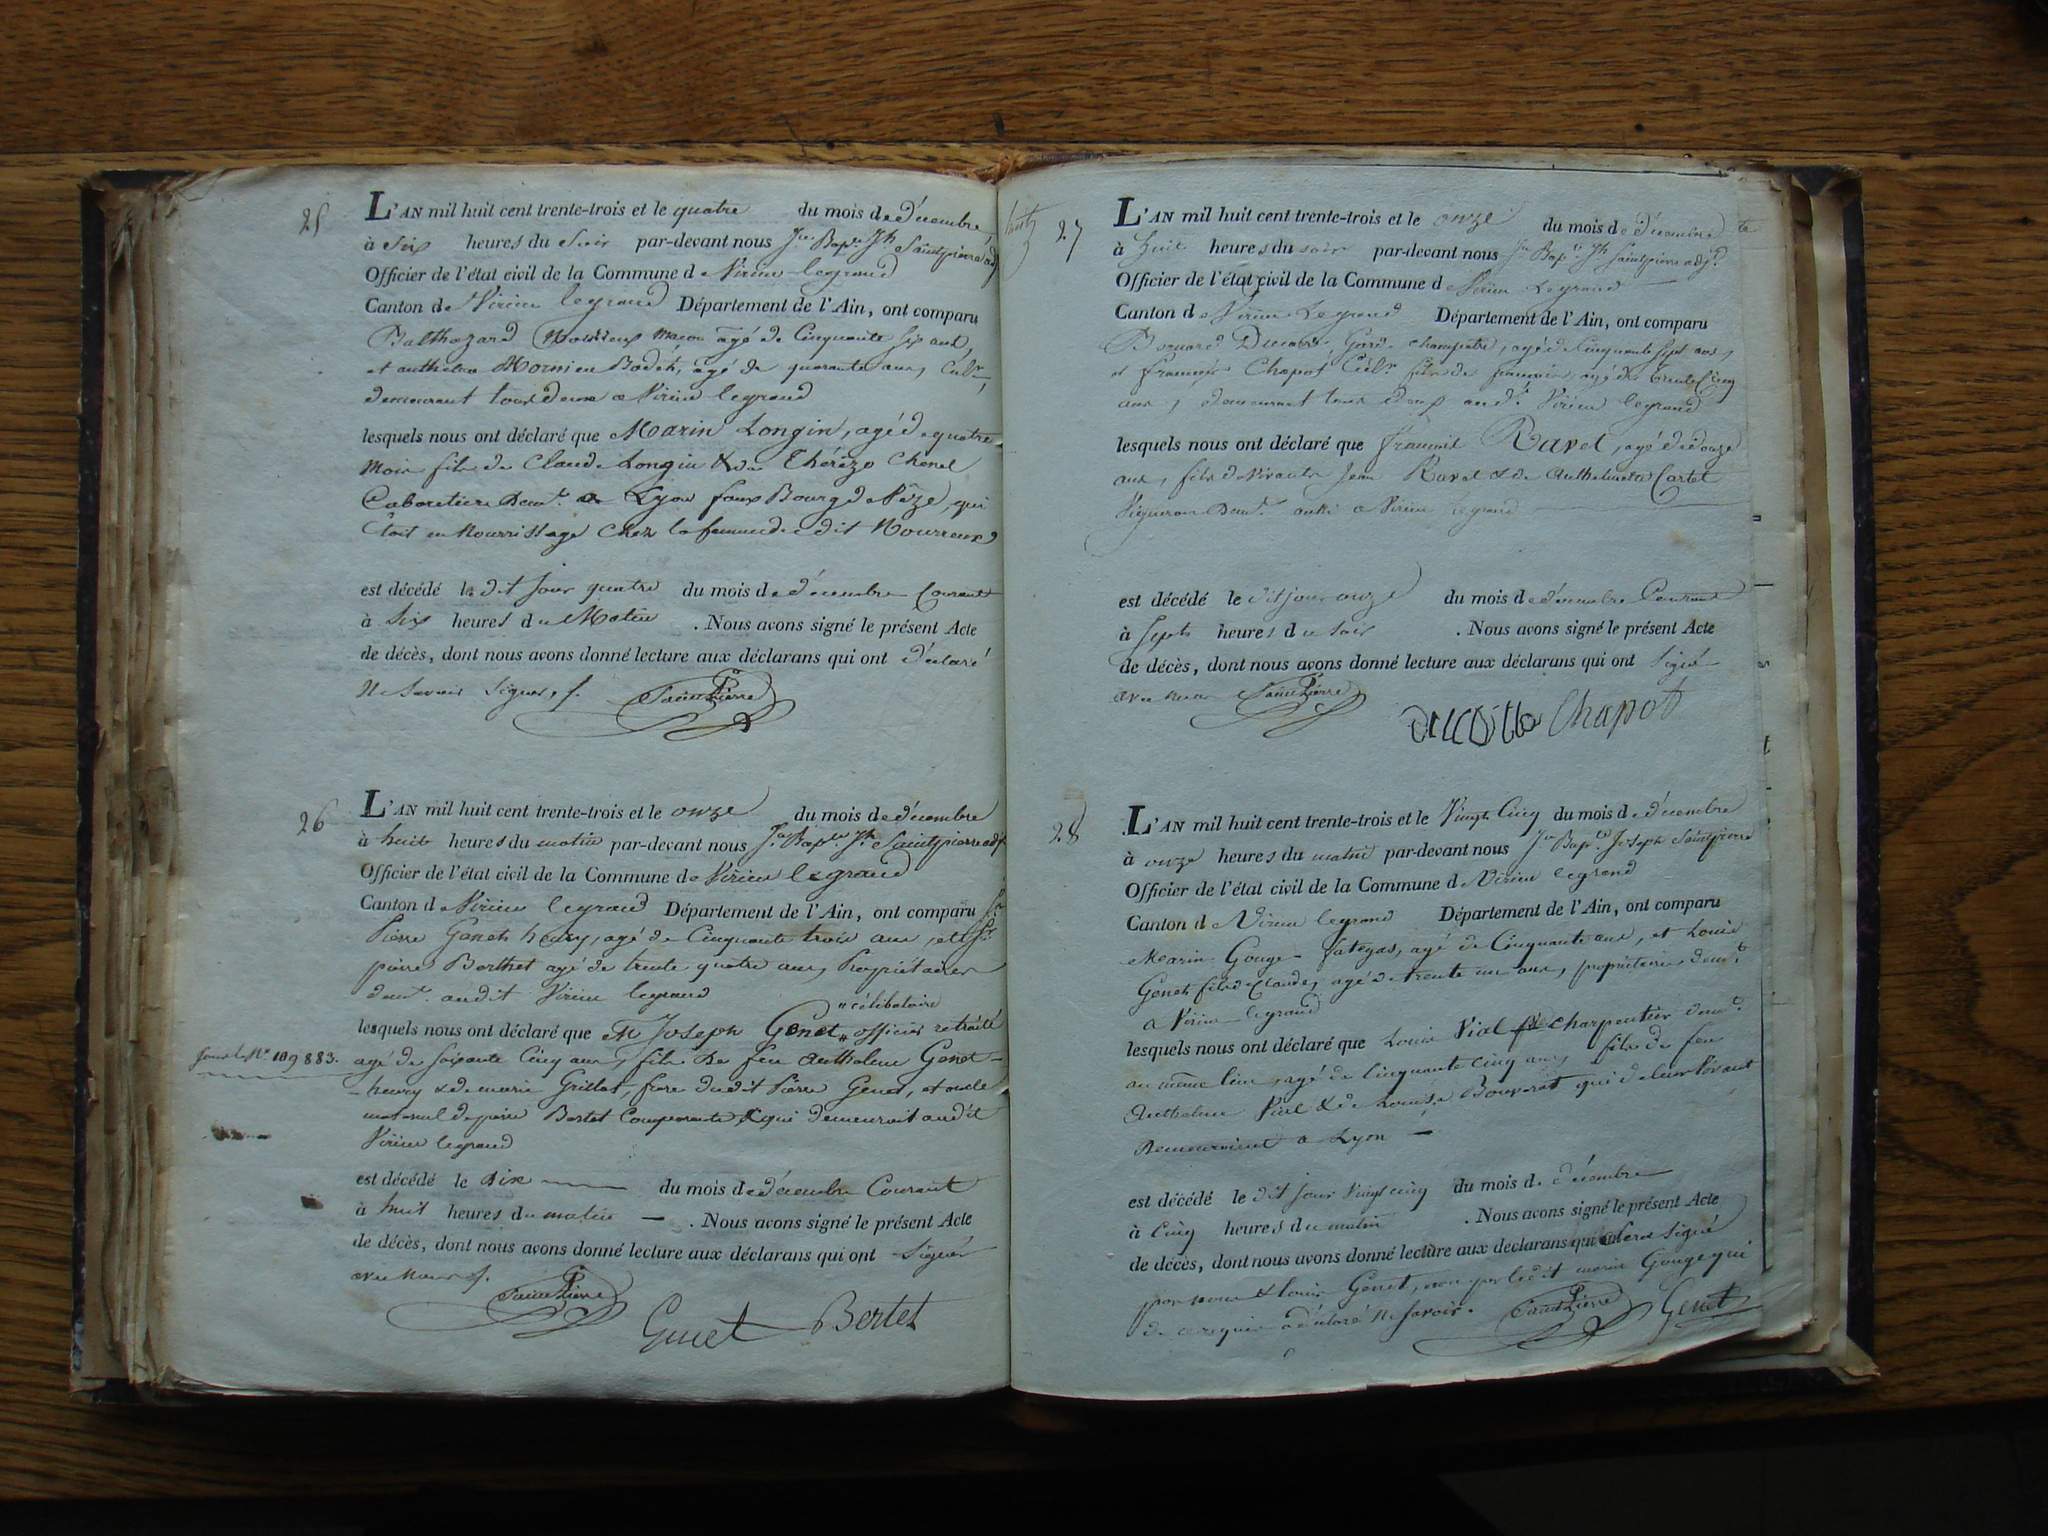 25
L'AN mil huit cent trente-trois et le quatre du mois de décembre
à six heures du soir par-devant nous Jn Bapte Jh Saintpierre adj
Officier de l'état civil de la Commune de Virieu legrand
Canton de Virieu legrand Département de l'Ain, ont comparu
Balthazard maçon agé de Cinquante six ans,
et anthelme Mornieu Bodet, agé de quarante ans, Culr
demeurant tous deux a Virieu legrand
lesquels nous ont déclaré que Marin Longin, agé de quatre
mois fils de Claude Longin & de Thérèze Chenel
Cabaretiers demt a Lyon faux Bourg de Vèze, qui
étoit en Nourrissage Chez la femme dudit
est décédé le dit jour quatre du mois de décembre Courant
à six heures du Matin . Nous avons signé le présent Acte
de décès, dont nous avons donné lecture aux déclarans qui ont déclaré
Ne Savoir Signer, f. SaintPierre
26
L'AN mil huit cent trente-trois et le onze du mois de décembre
à huit heures du matin par-devant nous Jn Bapte Jh Saintpierre adj
Officier de l'état civil de la Commune de Virieu legrand
Canton de Virieu legrand Département de l'Ain, ont comparu Sr
Pierre Genet henry, agé de Cinquante trois ans, et Sr
pierre Berthet agé de trente quatre ans, Propriétaires
demt audit Virieu legrand
" célibataire
lesquels nous ont déclaré que M Joseph Genet " officier retraité
sous le No 109883.
agé de soixante Cinq ans, fils de feu Anthelme Genet-
-henry & de marie Grillet, frere dudit Pierre Genet, et oncle
maternel de pierre Bertet Comparants & qui demeuroit audit
Virieu legrand
est décédé le dix du mois de décembre Courant
à huit heures du matin — . Nous avons signé le présent Acte
de décès, dont nous avons donné lecture aux déclarans qui ont Signés
avec nous f. SaintPierre
Genet Bertet
27
L'AN mil huit cent trente-trois et le onze du mois de décembre
à huit heures du soir par-devant nous Jn Bapte Jh Saintpierre adjt
Officier de l'état civil de la Commune de Virieu Legrand
Canton de Virieu Legrand Département de l'Ain, ont comparu
Garde champetre, agé de Cinquante Sept ans,
et françois Chapot Culr fils de françois, agé de trente Cinq
ans, demeurant tous deux audt Virieu legrand
lesquels nous ont déclaré que françois Ravet, agé de douze
ans, fils de vivants Jean Ravet & de Anthelmette Cartet
Vigneron demt audit a Virieu legrand
est décédé le dit jour onze du mois de décembre Courant
à Sept heures du soir . Nous avons signé le présent Acte
de décès, dont nous avons donné lecture aux déclarans qui ont Signé
avec nous SaintPierre
Chapot
28
L'AN mil huit cent trente-trois et le Vingt Cinq du mois de décembre
à onze heures du matin par-devant nous Jn Bapte Joseph Saintpierre
Officier de l'état civil de la Commune de Virieu legrand
Canton de Virieu legrand Département de l'Ain, ont comparu
Marin Gouge fategas, agé de Cinquante ans, et Louis
Genet fils de Claude, agé de trente un ans, propriétaires demt
a Virieu legrand
lesquels nous ont déclaré que Louis Vial charpentier demt
au même lieu, agé de Cinquante cinq ans, fils de feu
Anthelme Vial & de Louise Bouvorat qui de leur vivant
Demeuroient a Lyon —
est décédé le dit jour Vingt cinq du mois de décembre
à Cinq heures du matin . Nous avons signé le présent Acte
de décès, dont nous avons donné lecture aux déclarans qui signé
par nous & louis Genet, non par ledit marin Gouge qui
de ce requis a déclaré Ne savoir. SaintPierre Genet